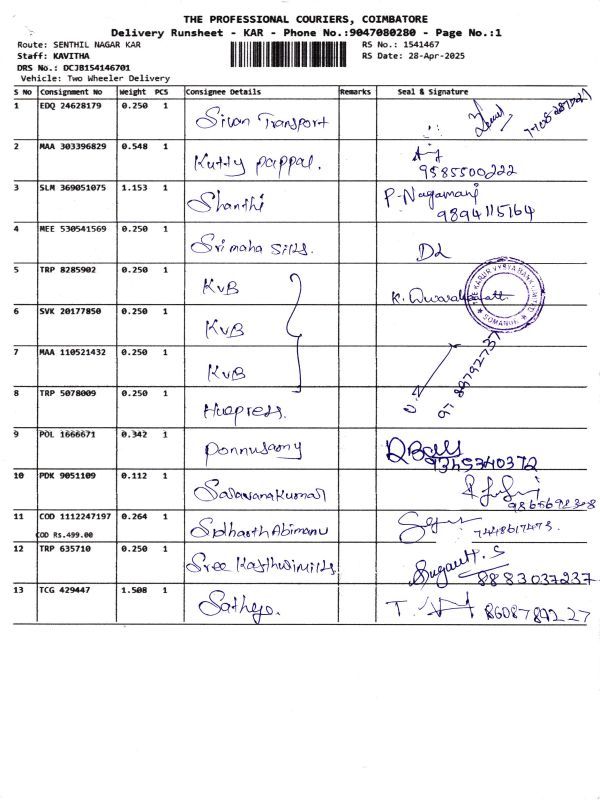 THE PROFESSIONAL COURIERS, COIMBATORE
Delivery Runsheet - KAR - Phone No.:9047080280 - Page No.:1
Route: SENTHIL NAGAR KAR RS No.: 1541467
Staff: KAVITHA RS Date: 28-Apr-2025
DRS No.: DCJB154146701
Vehicle: Two Wheeler Delivery
S No Consignment No Weight PCS Consignee Details Remarks Seal & Signature
1 EDQ 24628179 0.250 1 Sivan Transport
2 MAA 303396829 0.548 1 Kutty pappal. 9585500222
3 SLM 369051075 1.153 1 Shanthi P. Nagamani
9894115164
4 MEE 530541569 0.250 1 Sri maha silks.
5 TRP 8285902 0.250 1 KVB
THE KARUR VYSYA BANK LIMITED
SOMANUR
6 SVK 20177850 0.250 1 KVB
7 MAA 110521432 0.250 1 KVB
8 TRP 5078009 0.250 1
9 POL 1666671 0.342 1 Ponnusamy 9345340372
10 PDK 9051109 0.112 1 Saravanakumar
11 COD 1112247197 0.264 1 Sidharth Abimanu 7448617473.
COD Rs.499.00
12 TRP 635710 0.250 1 Sree 8883037237
13 TCG 429447 1.508 1 T.